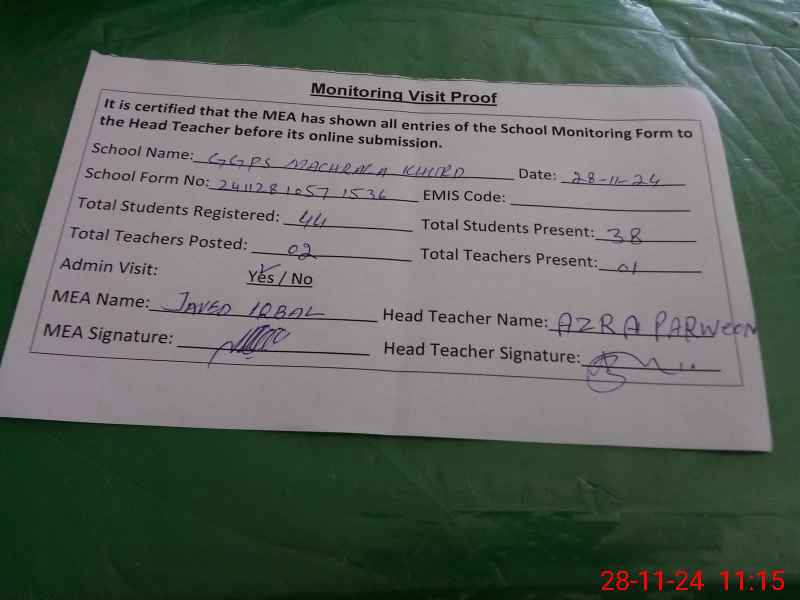 Monitoring Visit Proof
It is certified that the MEA has shown all entries of the School Monitoring Form to
the Head Teacher before its online submission.
School Name: GGPS MACHRALA KHURD Date: 28-11-24
School Form No: 24112810571536 EMIS Code:
Total Students Registered: 44 Total Students Present: 38
Total Teachers Posted: 02 Total Teachers Present: 01
Admin Visit: Yes / No
MEA Name: JAVED IQBAL Head Teacher Name: AZRA PARWEEN
MEA Signature: Head Teacher Signature:
28-11-24 11:15